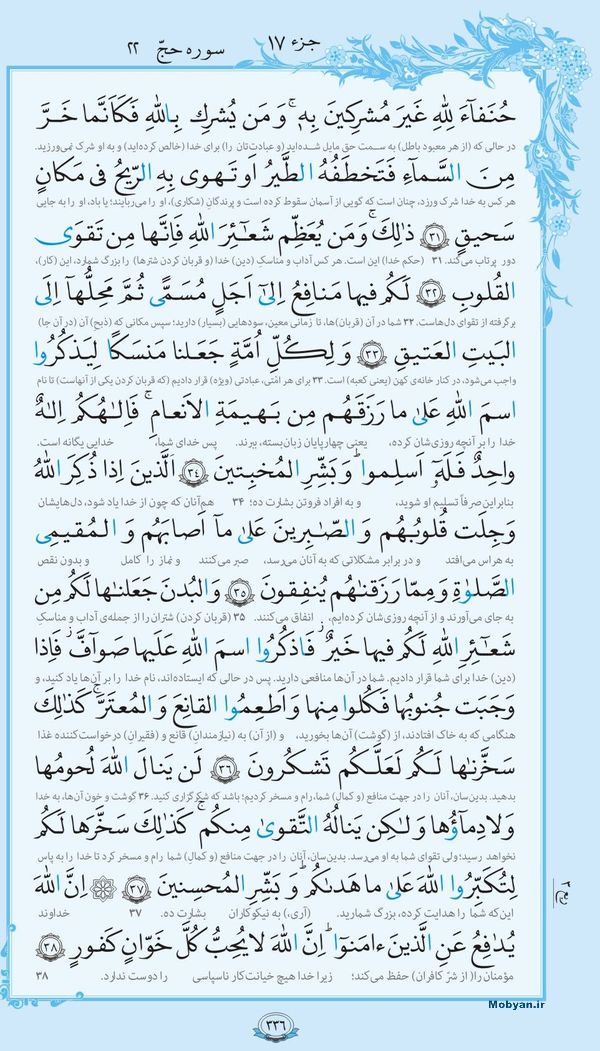 جزء ۱۷
سوره حجّ ۲۲
حُنَفآءَ لِلّٰهِ غَيرَ مُشرِكينَ بِهِ ۚ وَ مَن يُشرِك بِاللّٰهِ فَكَاَنَّما خَرَّ
در حالی که (از هر معبود باطل) به سمت حق مایل شده‌اید (و عبادت‌تان را) برای خدا (خالص کرده‌اید) و به او شرک نمی‌ورزید.
مِنَ السَّمآءِ فَتَخطَفُهُ الطَّيرُ اَو تَهوى بِهِ الرّيحُ فى مَكانٍ
هر کس به خدا شرک ورزد، چنان است که گویی از آسمان سقوط کرده است و پرندگانِ (شکاری)، او را می‌ربایند؛ یا باد، او را به جایی
سَحيقٍ ﴿۳۱﴾ ذٰلِكَ ۖ وَ مَن يُعَظِّم شَعآئِرَ اللّٰهِ فَاِنَّها مِن تَقوَى
دور پرتاب می‌کند. ۳۱ (حکم خدا) این است. هر کس آداب و مناسکِ (دین) خدا (و قربان کردن شترها) را بزرگ شمارد، این (کار)،
القُلوبِ ﴿۳۲﴾ لَكُم فيها مَنافِعُ اِلىٰٓ اَجَلٍ مُسَمًّى ثُمَّ مَحِلُّهآ اِلَى
برگرفته از تقوای دل‌هاست. ۳۲ شما در آن (قربان)ها، تا زمانی معین، سودهایی (بسیار) دارید؛ سپس مکانی که (ذبحِ) آن (در آن جا)
البَيتِ العَتيقِ ﴿۳۳﴾ وَ لِكُلِّ اُمَّةٍ جَعَلنا مَنسَكًا لِيَذكُرُوا
واجب می‌شود، در کنار خانه‌ی کهن (یعنی کعبه) است. ۳۳ برای هر امّتی، عبادتی (ویژه) قرار دادیم (که قربان کردن یکی از آنهاست) تا نام
اسمَ اللّٰهِ عَلىٰ ما رَزَقَهُم مِن بَهيمَةِ الاَنعامِ ۗ فَاِلٰهُكُم اِلٰهٌ
خدا را بر آنچه روزی‌شان کرده، یعنی چهارپایان زبان‌بسته، ببرند. پس خدای شما، خدایی یگانه است.
واحِدٌ فَلَهُٓ اَسلِموا ۗ وَ بَشِّرِ المُخبِتينَ ﴿۳۴﴾ اَلَّذينَ اِذا ذُكِرَ اللّٰهُ
بنابراین صرفاً تسلیم او شوید، و به افراد فروتن بشارت ده؛ ۳۴ هم‌آنان که چون از خدا یاد شود، دل‌هایشان
وَجِلَت قُلوبُهُم وَ الصّٰبِرينَ عَلىٰ مآ اَصابَهُم وَ المُقيمِى
به هراس می‌افتد و در برابر مشکلاتی که به آنان می‌رسد، صبر می‌کنند و نماز را کامل و بدون نقص
الصَّلوٰةِ وَ مِمّا رَزَقنٰهُم يُنفِقونَ ﴿۳۵﴾ وَ البُدنَ جَعَلنٰها لَكُم مِن
به جای می‌آورند و از آنچه روزی‌شان کرده‌ایم، انفاق می‌کنند. ۳۵ (قربان کردن) شتران را از جمله‌ی آداب و مناسکِ
شَعآئِرِ اللّٰهِ لَكُم فيها خَيرٌ ۖ فَاذكُرُوا اسمَ اللّٰهِ عَلَيها صَوآفَّ ۖ فَاِذا
(دین) خدا برای شما قرار دادیم. شما در آن‌ها منافعی دارید. پس در حالی که ایستاده‌اند، نام خدا را بر آن‌ها یاد کنید، و
وَجَبَت جُنوبُها فَكُلوا مِنها وَ اَطعِمُوا القانِعَ وَ المُعتَرَّ ۚ كَذٰلِكَ
هنگامی که به خاک افتادند، از (گوشت) آن‌ها بخورید، و (از آن) به (نیازمندانِ) قانع و (فقیرانِ) درخواست‌کننده غذا
سَخَّرنٰها لَكُم لَعَلَّكُم تَشكُرونَ ﴿۳۶﴾ لَن يَنالَ اللّٰهَ لُحومُها
بدهید. بدین‌سان، آنان را در جهت منافع (و کمالِ) شما، رام و مسخر کردیم؛ باشد که شکرگزاری کنید. ۳۶ گوشت و خون آن‌ها، به خدا
وَ لا دِمآؤُها وَ لٰكِن يَنالُهُ التَّقوىٰ مِنكُم ۚ كَذٰلِكَ سَخَّرَها لَكُم
نخواهد رسید؛ ولی تقوای شما به او می‌رسد. بدین‌سان، آنان را در جهت منافع (و کمالِ) شما رام و مسخر کرد تا خدا را به پاس
لِتُكَبِّرُوا اللّٰهَ عَلىٰ ما هَدىٰكُم ۗ وَ بَشِّرِ المُحسِنينَ ﴿۳۷﴾ ۞ اِنَّ اللّٰهَ
این‌که شما را هدایت کرده، بزرگ شمارید. (آری،) به نیکوکاران بشارت ده. ۳۷ خداوند
يُدافِعُ عَنِ الَّذينَ ءامَنوٓا ۗ اِنَّ اللّٰهَ لا يُحِبُّ كُلَّ خَوّانٍ كَفورٍ ﴿۳۸﴾
مؤمنان را (از شرّ کافران) حفظ می‌کند؛ زیرا خدا هیچ خیانت‌کار ناسپاسی را دوست ندارد. ۳۸
۳۳۶
Mobyan.ir